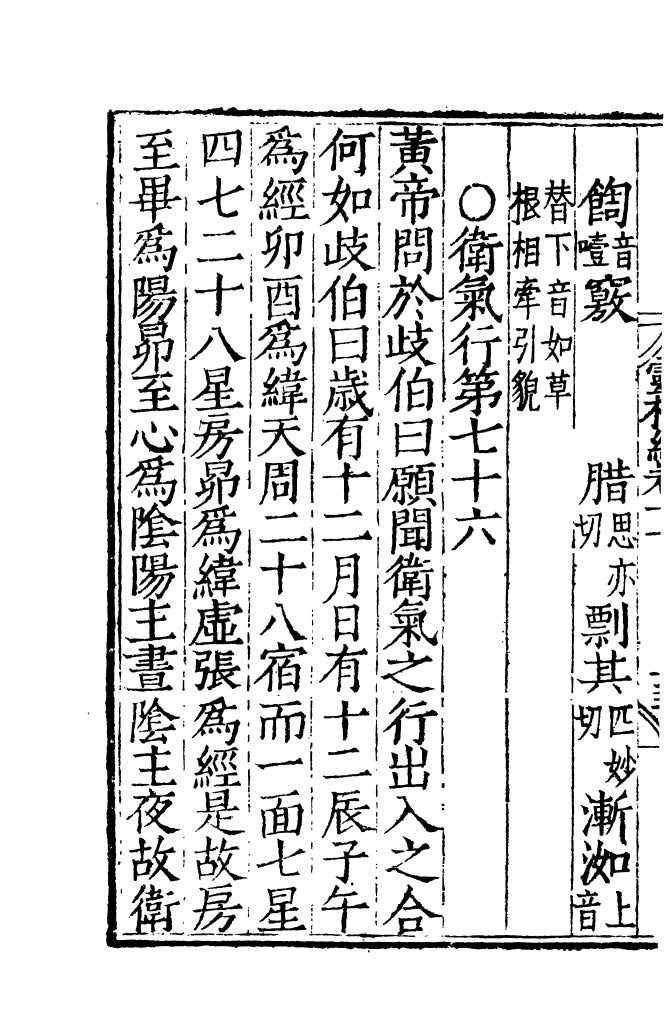 音噎竅　腊思亦切　剽其匹妙切　漸洳上音
替下音如草根相牽引貌
〇衛氣行第七十六
黃帝問於歧伯曰願聞衛氣之行出入之合
何如歧伯曰歲有十二月日有十二辰子午
爲經卯酉爲緯天周二十八宿而一面七星
四七二十八星房昴爲緯虛張爲經是故房
至畢爲陽昴至心爲陰陽主晝陰主夜故衛